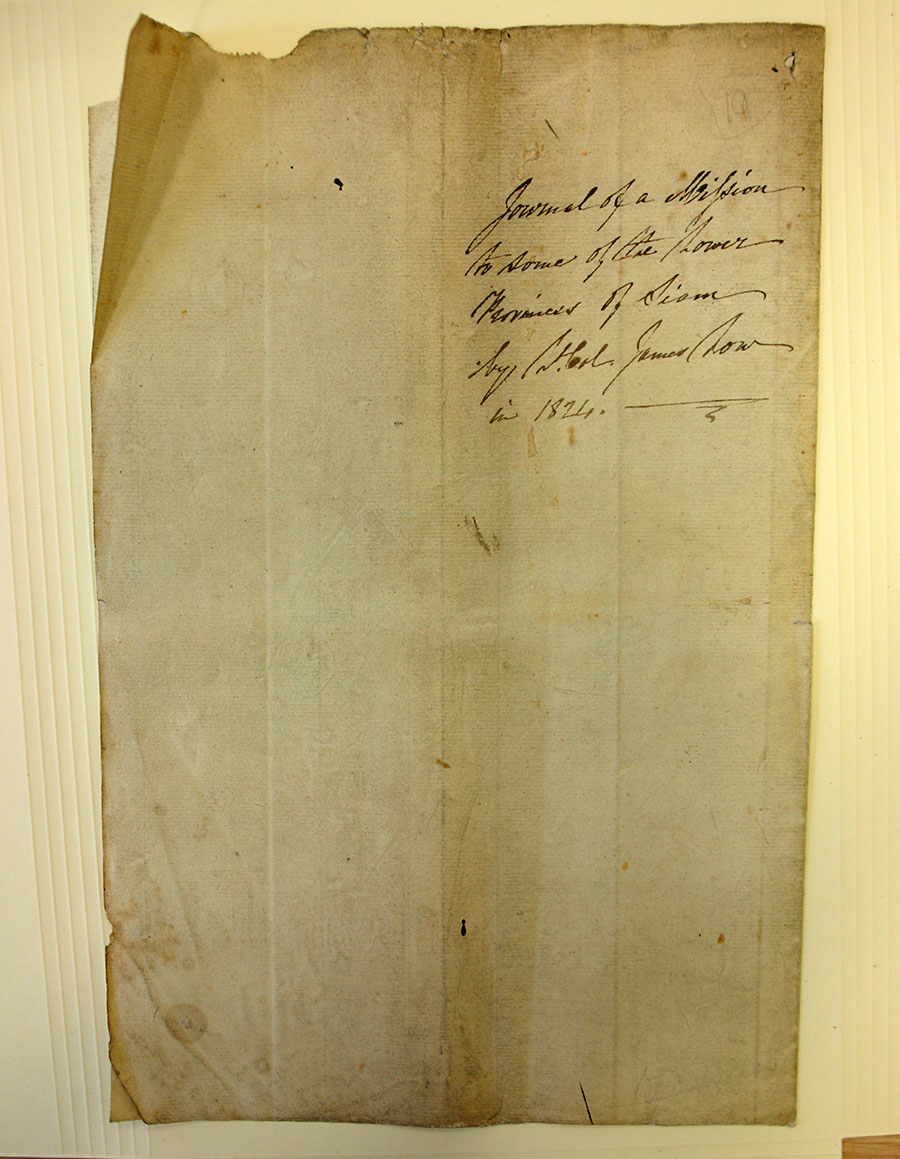 Journal of a Mission
to some of the Lower
Provinces of Siam
by Lt. Col. James Low
in 1824.